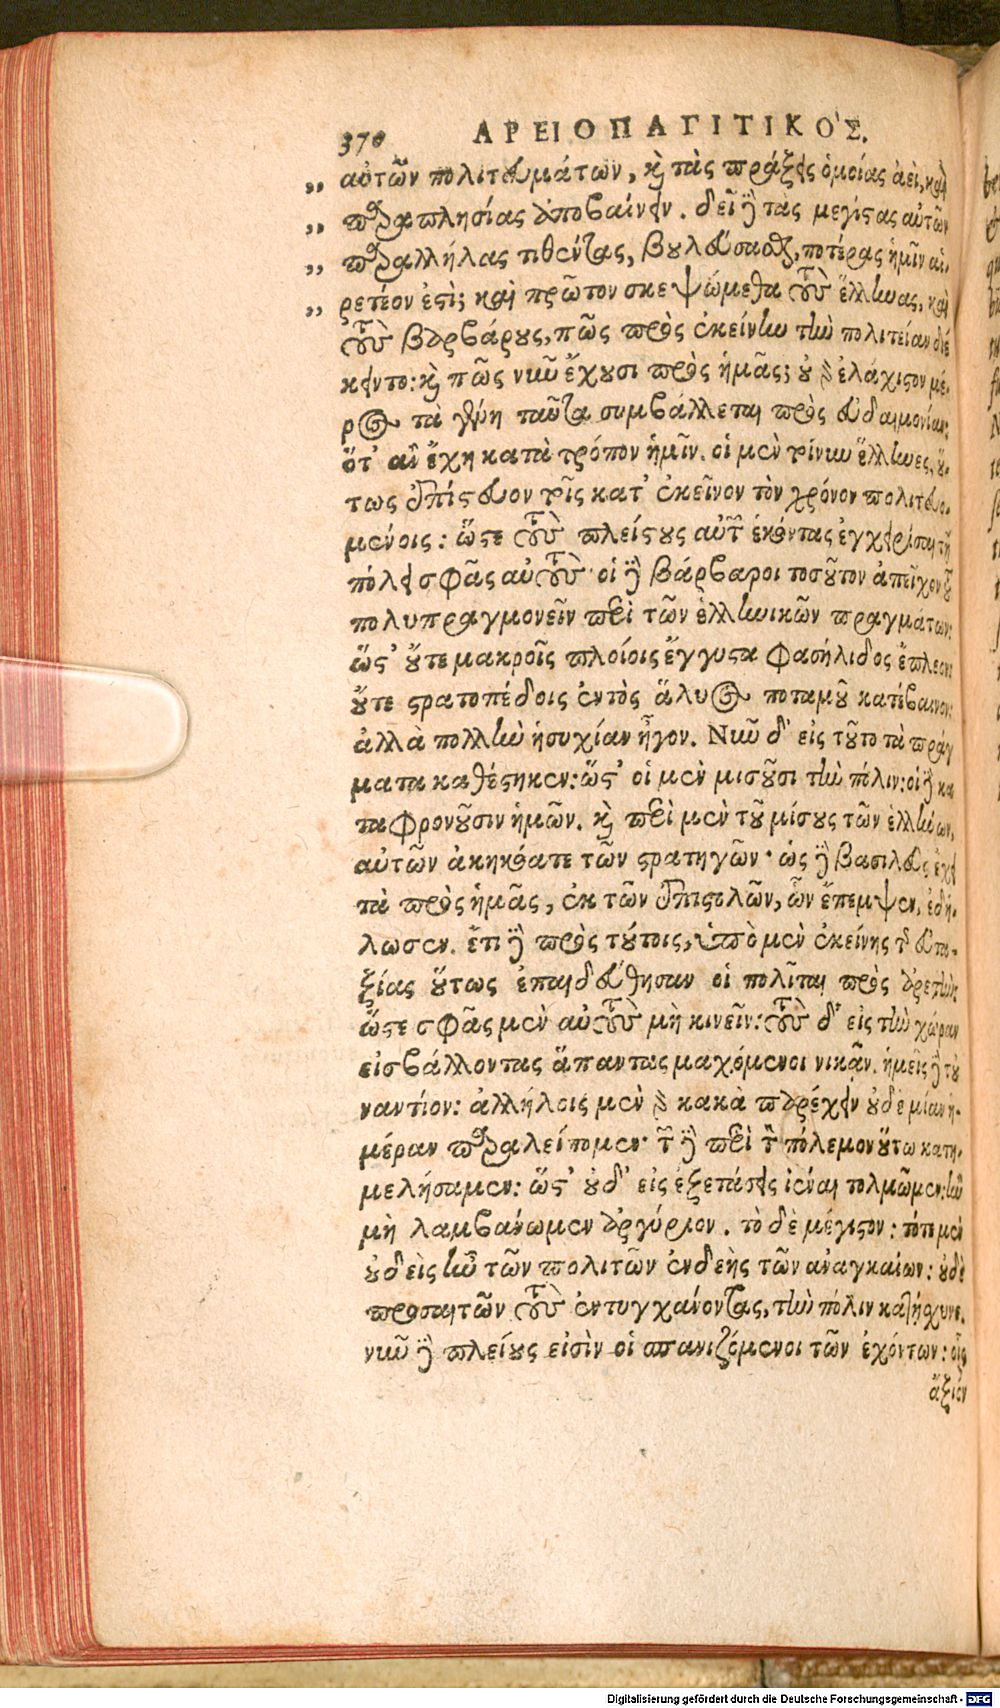 370 ΑΡΕΙΟΠΑΓΙΤΙΚΟΣ.
„ αὐτῶν πολιτευμάτων, καὶ τὰς πράξεις ὁμοίας ἀεὶ, καὶ
„ παραπλησίας ἀποβαίνειν. δεῖ δὲ τὰς μεγίστας αὐτῶν
„ παραλλήλας τιθέντας, βουλεύσασθαι, ποτέρας ἡμῖν αἱ-
„ ρετέον ἐστί; καὶ πρῶτον σκεψώμεθα τοὺς ἕλληνας, καὶ
τοὺς βαρβάρους, πῶς πρὸς ἐκείνην τὴν πολιτείαν διέ
κειντο: καὶ πῶς νῦν ἔχουσι πρὸς ἡμᾶς; οὐ γὰρ ἐλάχιστον μέ-
ρος τὰ γένη ταῦτα συμβάλλεται πρὸς εὐδαιμονίαν:
ὅτ' ἂν ἔχῃ κατὰ τρόπον ἡμῖν. οἱ μὲν τοίνυν ἕλληνες, οὕ-
τως ἐπίστευον τοῖς κατ' ἐκεῖνον τὸν χρόνον πολιτευο-
μένοις: ὥστε τοὺς πλείστους αὐτῶν ἑκόντας ἐγχειρίσαι τῇ
πόλει σφᾶς αὐτούς· οἱ δὲ βάρβαροι τοσοῦτον ἀπεῖχον τοῦ
πολυπραγμονεῖν περὶ τῶν ἑλληνικῶν πραγμάτων:
ὥστ' οὔτε μακροῖς πλοίοις ἔγγιστα Φασήλιδος ἔπλεον:
οὔτε στρατοπέδοις ἐντὸς ἅλυος ποταμοῦ κατέβαινον:
ἀλλὰ πολλὴν ἡσυχίαν ἦγον. Νῦν δ' εἰς τοῦτο τὰ πράγ
ματα καθέστηκεν: ὥστ' οἱ μὲν μισοῦσι τὴν πόλιν: οἱ δὲ κα
ταφρονοῦσιν ἡμῶν. καὶ περὶ μὲν τοῦ μίσους τῶν ἑλλήνων,
αὐτῶν ἀκηκόατε τῶν στρατηγῶν· ὡς δὲ βασιλεὺς ἔχει
τὰ πρὸς ἡμᾶς, ἐκ τῶν ἐπιστολῶν, ὧν ἔπεμψεν, ἐδή-
λωσεν. ἔτι δὲ πρὸς τούτοις, ὑπὸ μὲν ἐκείνης τῆς εὐτα-
ξίας οὕτως ἐπαιδεύθησαν οἱ πολῖται πρὸς ἀρετὴν:
ὥστε σφᾶς μὲν αὐτοὺς μὴ κινεῖν: τοὺς δ' εἰς τὴν χώραν
εἰσβάλλοντας ἅπαντας μαχόμενοι νικᾷν. ἡμεῖς δὲ τοὐ
ναντίον: ἀλλήλοις μὲν γὰρ κακὰ παρέχειν οὐδὲ μίαν ἡ-
μέραν παραλείπομεν· τῶν δὲ περὶ τὸν πόλεμον οὕτω κατη-
μελήσαμεν: ὥστ' οὐδ' εἰς ἐξετάσεις ἰέναι τολμῶμεν: ἢν
μὴ λαμβάνωμεν ἀργύριον. τὸ δὲ μέγιστον: τότε μὲν
οὐδεὶς ἦν τῶν πολιτῶν ἐνδεὴς τῶν ἀναγκαίων: οὐδὲ
προσαιτῶν τοὺς ἐντυγχάνοντας, τὴν πόλιν κατῄσχυνε.
νῦν δὲ πλείους εἰσὶν οἱ σπανιζόμενοι τῶν ἐχόντων: οἷς
ἄξιόν
Digitalisierung gefördert durch die Deutsche Forschungsgemeinschaft - DFG